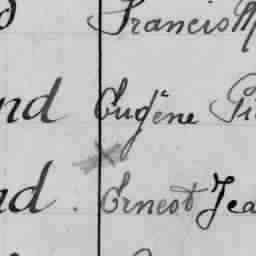 Francis
nd Eugène
nd. Ernest Jea